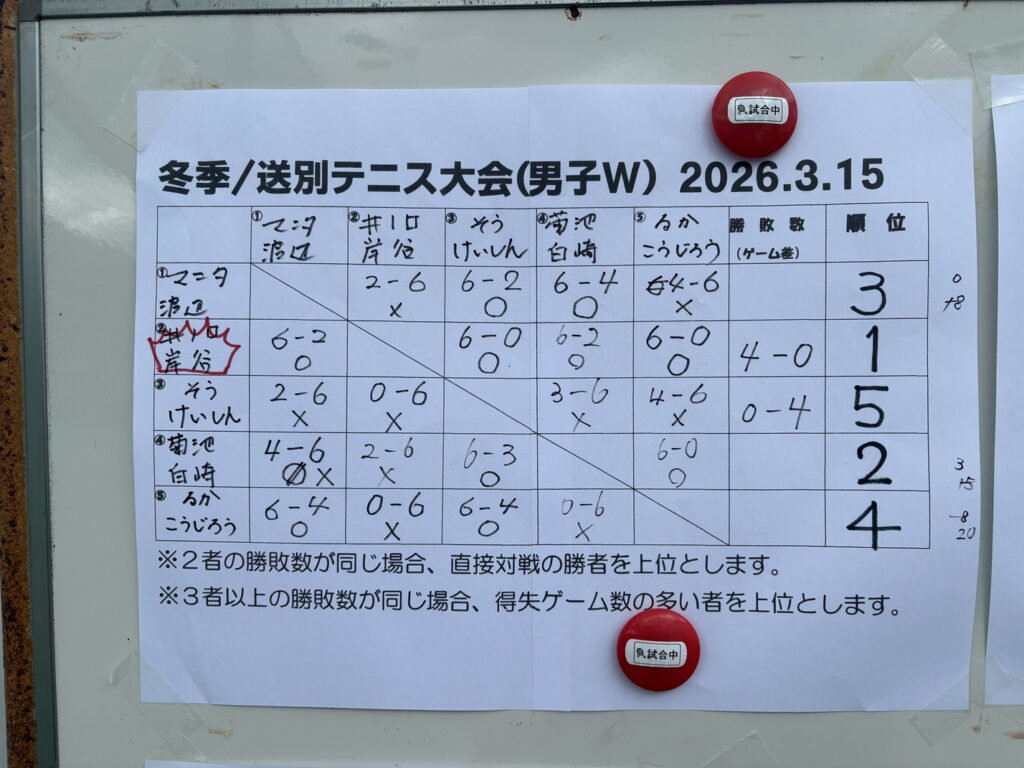 試合中
冬季/送別テニス大会(男子W) 2026.3.15
① マニタ 渡辺 ② 井口 岸谷 ③ そう けいしん ④ 菊池 白崎 ⑤ るか こうじろう 勝敗数 (ゲーム差) 順位
① マニタ 渡辺 2-6 × 6-2 ○ 6-4 ○ 4-6 × 3 0
② 井口 岸谷 6-2 ○ 6-0 ○ 6-2 ○ 6-0 ○ 4-0 1
③ そう けいしん 2-6 × 0-6 × 3-6 × 4-6 × 0-4 5
④ 菊池 白崎 4-6 × 2-6 × 6-3 ○ 6-0 ○ 2 3 15
⑤ るか こうじろう 6-4 ○ 0-6 × 6-4 ○ 0-6 × 4 -8 20
※2者の勝敗数が同じ場合、直接対戦の勝者を上位とします。
※3者以上の勝敗数が同じ場合、得失ゲーム数の多い者を上位とします。
試合中